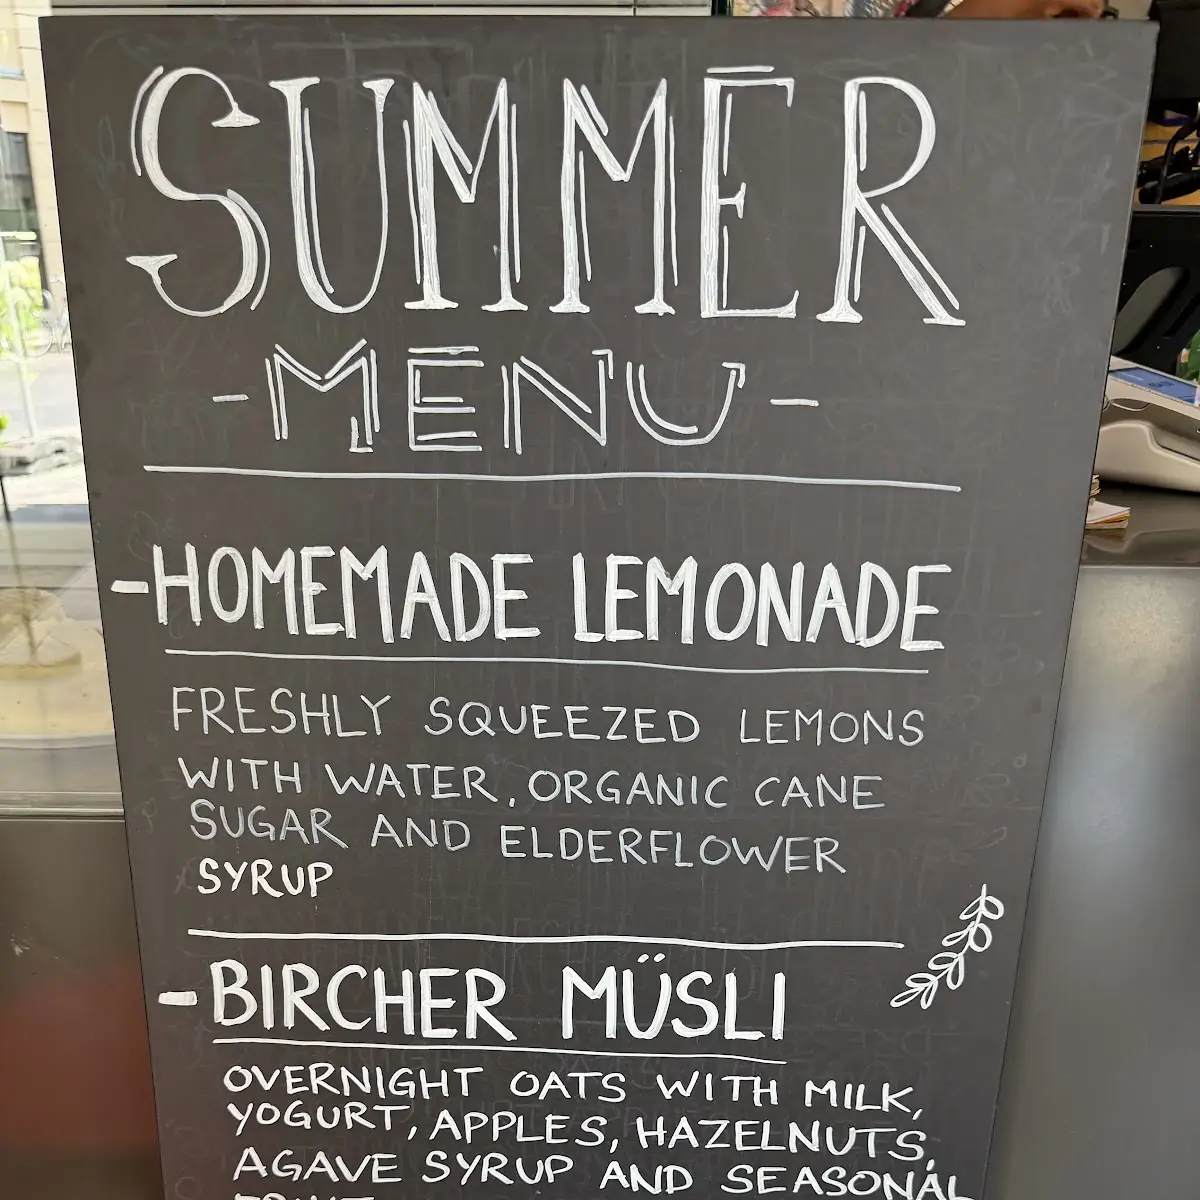 SUMMER
-MENU-
-HOMEMADE LEMONADE
FRESHLY SQUEEZED LEMONS
WITH WATER, ORGANIC CANE
SUGAR AND ELDERFLOWER
SYRUP
-BIRCHER MÜSLI
OVERNIGHT OATS WITH MILK,
YOGURT, APPLES, HAZELNUTS,
AGAVE SYRUP AND SEASONAL